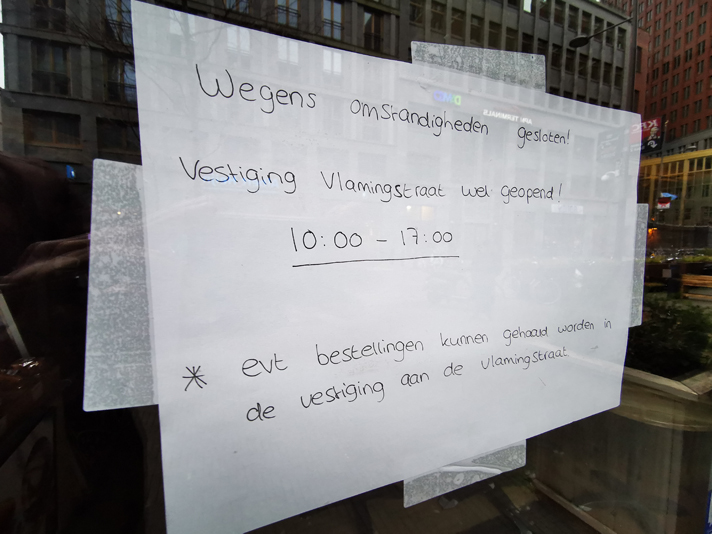 Wegens omstandigheden gesloten!
Vestiging Vlamingstraat wel geopend!
10:00 - 17:00
* evt bestellingen kunnen gehaald worden in
de vestiging aan de vlamingstraat